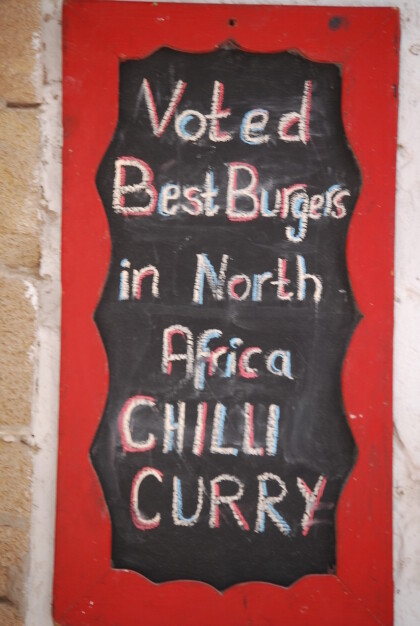 Voted
Best Burgers
in North
Africa
CHILLI
CURRY